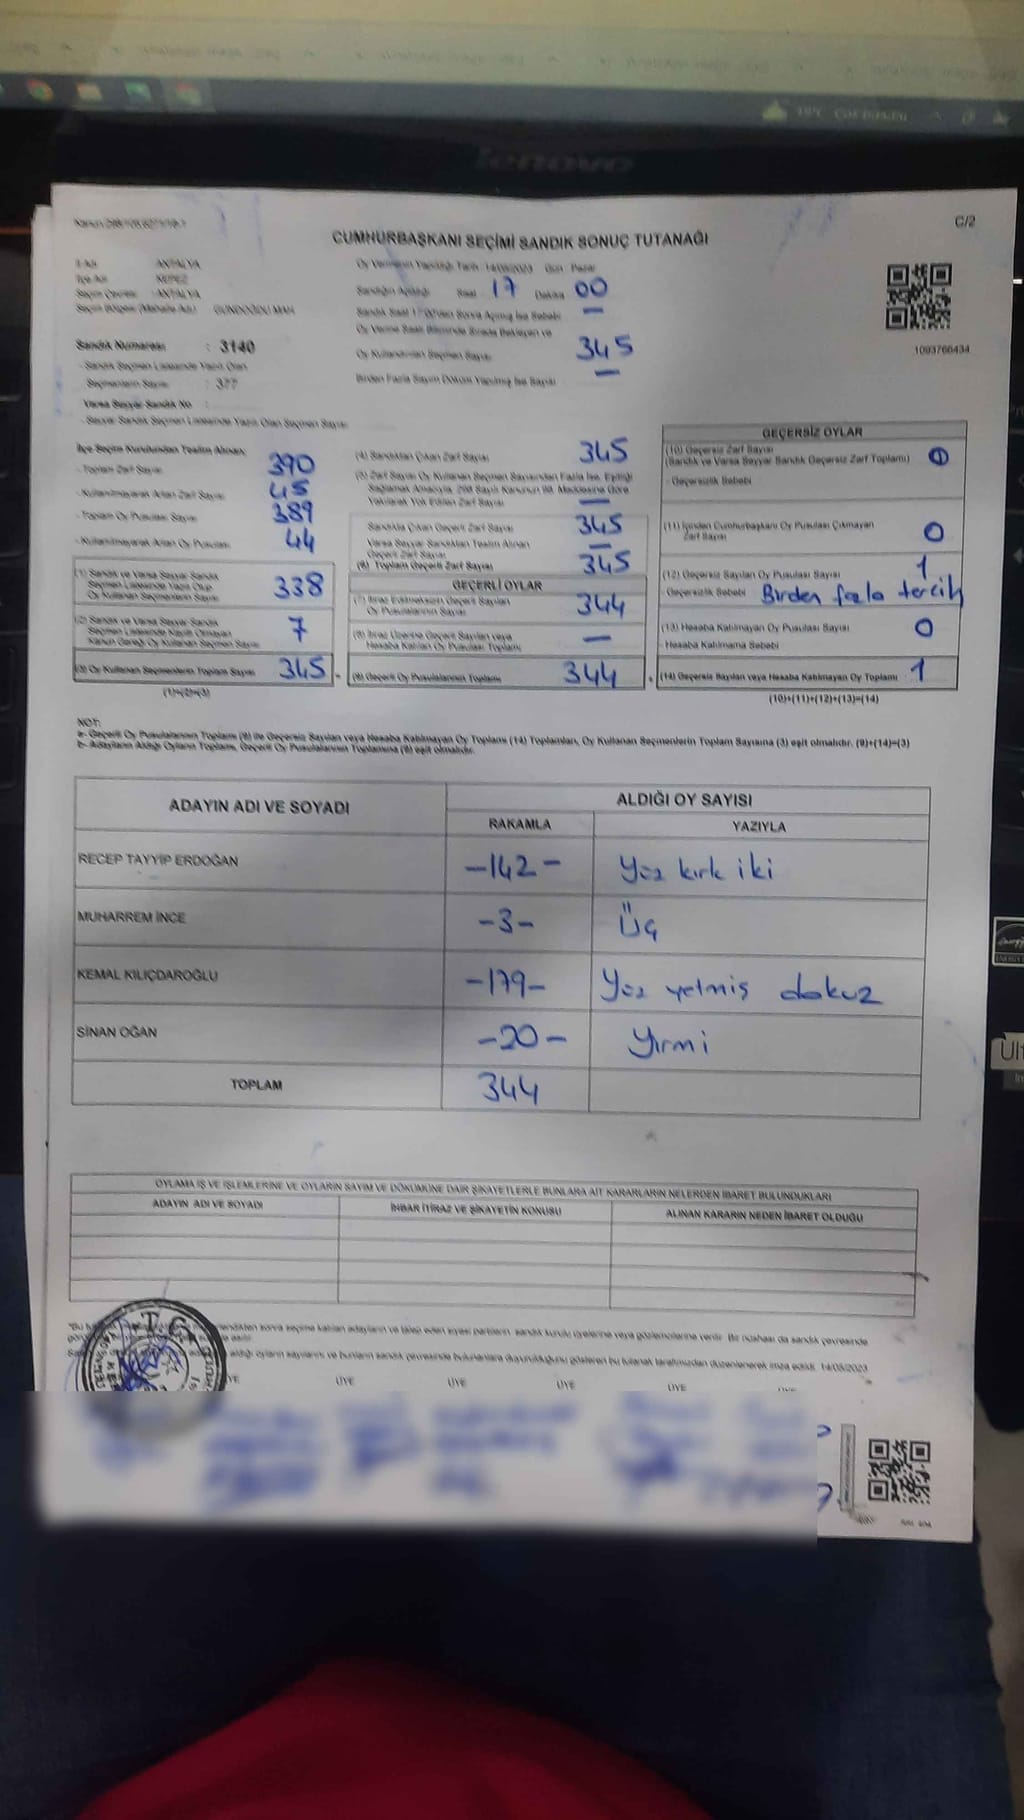 lenovo
C/2
CUMHURBAŞKANI SEÇİMİ SANDIK SONUÇ TUTANAĞI
İl Adı : ANTALYA
İlçe Adı : KEPEZ
Seçim Çevresi : ANTALYA
Seçim Bölgesi (Mahalle Adı) : GÜNDOĞDU MAH.
Sandık Numarası : 3140
- Sandık Seçmen Listesinde Yazılı Olan
Seçmenlerin Sayısı : 377
Varsa Seyyar Sandık No :
- Seyyar Sandık Seçmen Listesinde Yazılı Olan Seçmen Sayısı:
Oy Vermenin Yapıldığı Tarih : 14/05/2023 Gün : Pazar
Sandığın Açıldığı Saat : 17 Dakika : 00
Sandık Saat 17:00'den Sonra Açılmış İse Sebebi : —
Oy Verme Saati Bitiminde Sırada Bekleyen ve
Oy Kullandırılan Seçmen Sayısı : 345
Birden Fazla Sayım Döküm Yapılmış İse Sayısı : —
1093766434
İlçe Seçim Kurulundan Teslim Alınan;
- Toplam Zarf Sayısı : 390
- Kullanılmayarak Artan Zarf Sayısı : 45
- Toplam Oy Pusulası Sayısı : 389
- Kullanılmayarak Artan Oy Pusulası : 44
(1) Sandık ve Varsa Seyyar Sandık
Seçmen Listesinde Yazılı Olup
Oy Kullanan Seçmenlerin Sayısı : 338
(2) Sandık ve Varsa Seyyar Sandık
Seçmen Listesinde Kayıtlı Olmayan
Kanun Gereği Oy Kullanan Seçmen Sayısı : 7
(3) Oy Kullanan Seçmenlerin Toplam Sayısı : 345
(1)+(2)=(3)
(4) Sandıktan Çıkan Zarf Sayısı : 345
(5) Zarf Sayısı Oy Kullanan Seçmen Sayısından Fazla İse, Eşitliği
Sağlamak Amacıyla, 298 Sayılı Kanunun 98. Maddesine Göre
Yakılarak Yok Edilen Zarf Sayısı : —
Sandıkta Çıkan Geçerli Zarf Sayısı : 345
Varsa Seyyar Sandıktan Teslim Alınan
Geçerli Zarf Sayısı : —
(6) Toplam Geçerli Zarf Sayısı : 345
GEÇERLİ OYLAR
(7) İtiraz Edilmeksizin Geçerli Sayılan
Oy Pusulalarının Sayısı : 344
(8) İtiraz Üzerine Geçerli Sayılan veya
Hesaba Katılan Oy Pusulası Toplamı : —
(9) Geçerli Oy Pusulalarının Toplamı : 344
GEÇERSİZ OYLAR
(10) Geçersiz Zarf Sayısı
(Sandık ve Varsa Seyyar Sandık Geçersiz Zarf Toplamı)
- Geçersizlik Sebebi
(11) İçinden Cumhurbaşkanı Oy Pusulası Çıkmayan
Zarf Sayısı 0
(12) Geçersiz Sayılan Oy Pusulası Sayısı 1
- Geçersizlik Sebebi Birden fazla tercih
(13) Hesaba Katılmayan Oy Pusulası Sayısı 0
- Hesaba Katılmama Sebebi
(14) Geçersiz Sayılan veya Hesaba Katılmayan Oy Toplamı 1
(10)+(11)+(12)+(13)=(14)
NOT:
a- Geçerli Oy Pusulalarının Toplamı (9) ile Geçersiz Sayılan veya Hesaba Katılmayan Oy Toplamı (14) Toplamları, Oy Kullanan Seçmenlerin Toplam Sayısına (3) eşit olmalıdır. (9)+(14)=(3)
b- Adayların Aldığı Oyların Toplamı, Geçerli Oy Pusulalarının Toplamına (9) eşit olmalıdır.
ADAYIN ADI VE SOYADI ALDIĞI OY SAYISI
RAKAMLA YAZIYLA
RECEP TAYYİP ERDOĞAN -142- Yüz kırk iki
MUHARREM İNCE -3- Üç
KEMAL KILIÇDAROĞLU -179- Yüz yetmiş dokuz
SİNAN OĞAN -20- Yirmi
TOPLAM 344
OYLAMA İŞ VE İŞLEMLERİNE VE OYLARIN SAYIM VE DÖKÜMÜNE DAİR ŞİKAYETLERLE BUNLARA AİT KARARLARIN NELERDEN İBARET BULUNDUKLARI
ADAYIN ADI VE SOYADI İHBAR İTİRAZ VE ŞİKAYETİN KONUSU ALINAN KARARIN NEDEN İBARET OLDUĞU
sonra seçime katılan adayların ve talep eden siyasi partilerin sandık kurulu üyelerine veya gözlemcilerine verilir. Bir nüshası da sandık çevresinde
aldığı oyların sayılarını ve bunların sandık çevresinde bulunanlara duyurulduğunu gösteren bu tutanak tarafımızdan düzenlenerek imza edildi. 14/05/2023
ÜYE ÜYE ÜYE ÜYE
T.C.